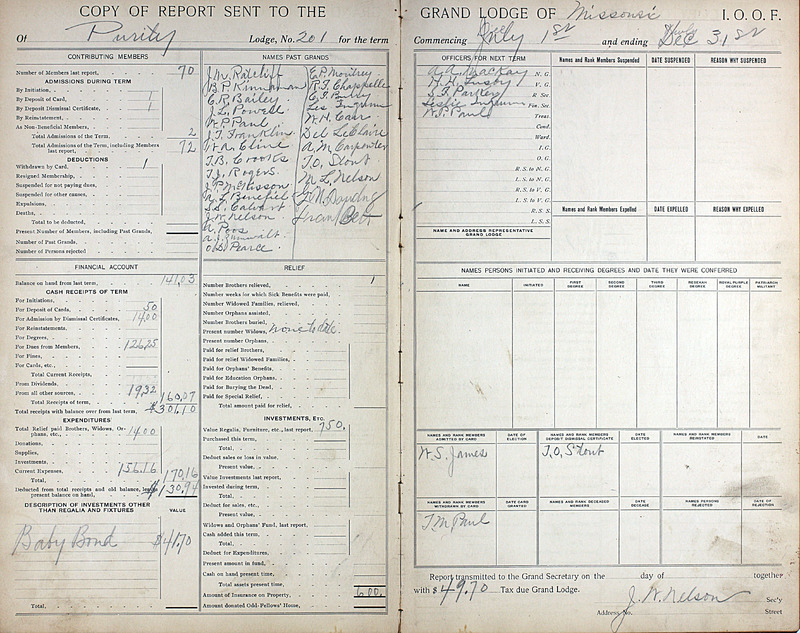 COPY OF REPORT SENT TO THE
Of Purity Lodge, No. 201 for the term
CONTRIBUTING MEMBERS
Number of Members last report, 70
ADMISSIONS DURING TERM
By Initiation,
By Deposit of Card, 1
By Deposit Dismissal Certificate, 1
By Reinstatement,
As Non-Beneficial Members,
Total Admissions of the Term, 2
Total Admissions of the Term, including Members last report, 72
DEDUCTIONS
Withdrawn by Card, 1
Resigned Membership,
Suspended for not paying dues,
Suspended for other causes,
Expulsions,
Deaths,
Total to be deducted,
Present Number of Members, including Past Grands,
Number of Past Grands
Number of Persons rejected
NAMES PAST GRANDS
J.M. Ratcliff
B.P. Kinnaman
C.R. Bailey
J.L. Powell
W.P. Paul
J.T. Franklin
W.A. Cline
T.B. Crooks
T.J. Rogers
J.W. Nelson
A. Poos
O.B. Pearce
R.F. Chappelle
Les Ingrum
W.H. Carr
Del LeClaire
A.M. Carpenter
T.O. Stout
M.L. Nelson
FINANCIAL ACCOUNT
Balance on hand from last term, 141,03
CASH RECEIPTS OF TERM
For Initiations,
For Deposit of Cards, 50
For Admission by Dismissal Certificates, 14.00
For Reinstatements,
For Degrees,
For Dues from Members, 126.25
For Fines,
For Cards, etc.,
Total Current Receipts,
From Dividends,
From all other sources, 19,32
Total Receipts of term, 160,07
Total receipts with balance over from last term, $301.10
EXPENDITURES
Total Relief paid Brothers, Widows, Orphans, etc., 14.00
Donations,
Supplies,
Investments,
Current Expenses, 156.16
Total, 170,16
Deducted from total receipts and old balance, leaves present balance on hand, $130.94
DESCRIPTION OF INVESTMENTS OTHER THAN REGALIA AND FIXTURES
VALUE
Baby Bond $41.70
Total,
RELIEF
Number Brothers relieved, 1
Number weeks for which Sick Benefits were paid,
Number Widowed Families, relieved,
Number Orphans assisted,
Number Brothers buried,
Present number Widows, none to date
Present number Orphans,
Paid for relief Brothers,
Paid for relief Widowed Families,
Paid for Orphans' Benefits
Paid for Education Orphans,
Paid for Burying the Dead,
Paid for Special Relief,
Total amount paid for relief,
INVESTMENTS, Etc.
Value Regalia, Furniture, etc., last report, 750.
Purchased this term,
Total,
Deduct sales or loss in value,
Present value,
Value Investments last report,
Invested during term,
Total,
Deduct for sales, etc.,
Present value,
Widows and Orphans' Fund, last report,
Cash added this term,
Total,
Deduct for Expenditures,
Present amount in fund,
Cash on hand present time,
Total assets present time,
Amount of Insurance on Property, 600.
Amount donated Odd-Fellows' Home,
GRAND LODGE OF Missouri I. O. O. F.
Commencing July 1st and ending Dec 31st
OFFICERS FOR NEXT TERM
A.A. Mackay N. G.
V. G.
S.F. Parker R. Sec.
Leslie Ingrum Fin. Sec.
W.P. Paul Treas.
Cond.
Ward.
I. G.
O. G.
R. S. to N. G.
L. S. to N. G.
R. S. to V. G.
L. S. to V. G.
R. S. S.
L. S. S.
NAME AND ADDRESS REPRESENTATIVE GRAND LODGE
Names and Rank Members Suspended
DATE SUSPENDED
REASON WHY SUSPENDED
Names and Rank Members Expelled
DATE EXPELLED
REASON WHY EXPELLED
NAMES PERSONS INITIATED AND RECEIVING DEGREES AND DATE THEY WERE CONFERRED
NAME
INITIATED
FIRST DEGREE
SECOND DEGREE
THIRD DEGREE
REBEKAH DEGREE
ROYAL PURPLE DEGREE
PATRIARCH MILITANT
NAMES AND RANK MEMBERS ADMITTED BY CARD
DATE OF ELECTION
NAMES AND RANK MEMBERS DEPOSIT DISMISSAL CERTIFICATE
DATE ELECTED
NAMES AND RANK MEMBERS REINSTATED
DATE
W.S. James
T.O. Stout
NAMES AND RANK MEMBERS WITHDRAWN BY CARD
DATE CARD GRANTED
NAMES AND RANK DECEASED MEMBERS
DATE DECEASE
NAMES PERSONS REJECTED
DATE OF REJECTION
T M Paul
Report transmitted to the Grand Secretary on the day of together
with $49.70 Tax due Grand Lodge.
J. W. Nelson Sec'y
Address No. Street